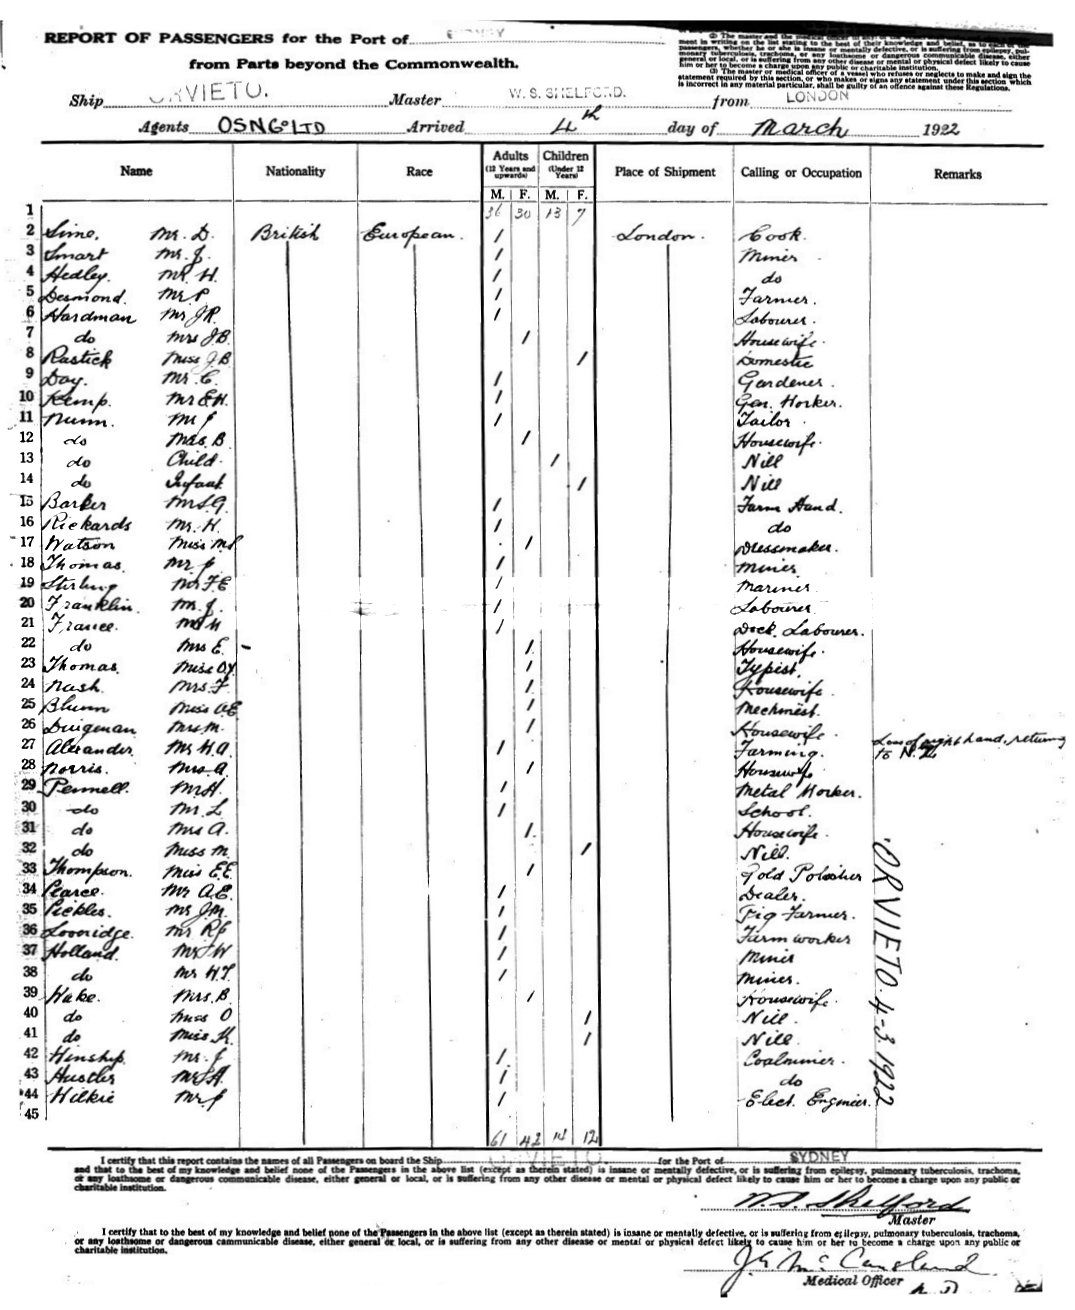 REPORT OF PASSENGERS for the Port of SYDNEY
from Parts beyond the Commonwealth.
(2) The master and the medical officer
ment in writing on the list stating to the best of their knowledge and belief, as to each of the
passengers, whether he or she is insane or mentally defective, or is suffering from epilepsy, pul-
monary tuberculosis, trachoma, or any loathsome or dangerous communicable disease, either
general or local, or is suffering from any other disease or mental or physical defect likely to cause
him or her to become a charge upon any public or charitable institution.
(3) The master or medical officer of a vessel who refuses or neglects to make and sign the
statement required by this section, or who makes or signs any statement under this section which
is incorrect in any material particular, shall be guilty of an offence against these Regulations.
Ship ORVIETO. Master W. S. SHELFORD. from LONDON
Agents OSNCo LTD Arrived 4th day of March 1922
Name Nationality Race Adults (12 Years and upwards) Children (Under 12 Years) Place of Shipment Calling or Occupation Remarks
M. F. M. F.
1 36 30 13 7
2 Sime, Mr. D. British European. / London. Cook.
3 Smart Mr. J. / Miner
4 Hedley. Mr. H. / do
5 Desmond. Mr P / Farmer.
6 Hardman Mr J.R. / Labourer.
7 do Mrs J.B. / Housewife.
8 Rastick Miss J.B. / Domestic
9 Day. Mr. C. / Gardener.
10 Kemp. Mr E.H. / Gen. Worker.
11 Nunn. Mr J / Tailor.
12 do Mrs. B / Housewife.
13 do Child. / Nill
14 do Infant / Nill
15 Barker Mr S.G. / Farm Hand.
16 Rickards Mr. H. / do
17 Watson Miss M / Dressmaker.
18 Thomas. Mr J / Miner
19 Stirling Mr F.E / Mariner
20 Franklin. Mr. J. / Labourer
21 France. Mr H / Dock. Labourer.
22 do Mrs E. / Housewife.
23 Thomas. Miss / Typist.
24 Nash. Mrs. F. / Housewife
25 Blunn Miss A.E /
26 Duigenan Mrs M. / Housewife.
27 Alexander Mr H.A. / Farming. Loss of right hand, returning
to N.Z.
28 Norris. Mrs A. / Housewife
29 Pennell. Mr H. / Metal Worker.
30 do Mr. L. / School.
31 do Mrs A. / Housewife.
32 do Miss M. / Nill.
33 Thompson. Miss E.E. / Gold Polisher
34 Pearce. Mr A.E. / Dealer.
35 Pickles. Mr J.M. / Pig Farmer.
36 Loveridge. Mr R J / Farm worker
37 Holland. Mr J W / Miner
38 do Mr W.T. / Miner.
39 Wake. Mrs. B / Housewife.
40 do Miss O / Nill.
41 do Miss K. / Nill.
42 Henship. Mr. J / Coalminer.
43 Hustler Mr H. / do
44 Wilkie Mr J / Elect. Engineer.
45
61 42 14 12
ORVIETO. 4-3.1922
I certify that this report contains the names of all Passengers on board the Ship ORVIETO for the Port of SYDNEY
and that to the best of my knowledge and belief none of the Passengers in the above list (except as therein stated) is insane or mentally defective, or is suffering from epilepsy, pulmonary tuberculosis, trachoma,
or any loathsome or dangerous communicable disease, either general or local, or is suffering from any other disease or mental or physical defect likely to cause him or her to become a charge upon any public or
charitable institution.
W. S. Shelford
Master
I certify that to the best of my knowledge and belief none of the Passengers in the above list (except as therein stated) is insane or mentally defective, or is suffering from epilepsy, pulmonary tuberculosis, trachoma,
or any loathsome or dangerous cammunicable disease, either general or local, or is suffering from any other disease or mental or physical defect likely to cause him or her to become a charge upon any public or
charitable institution.
Medical Officer